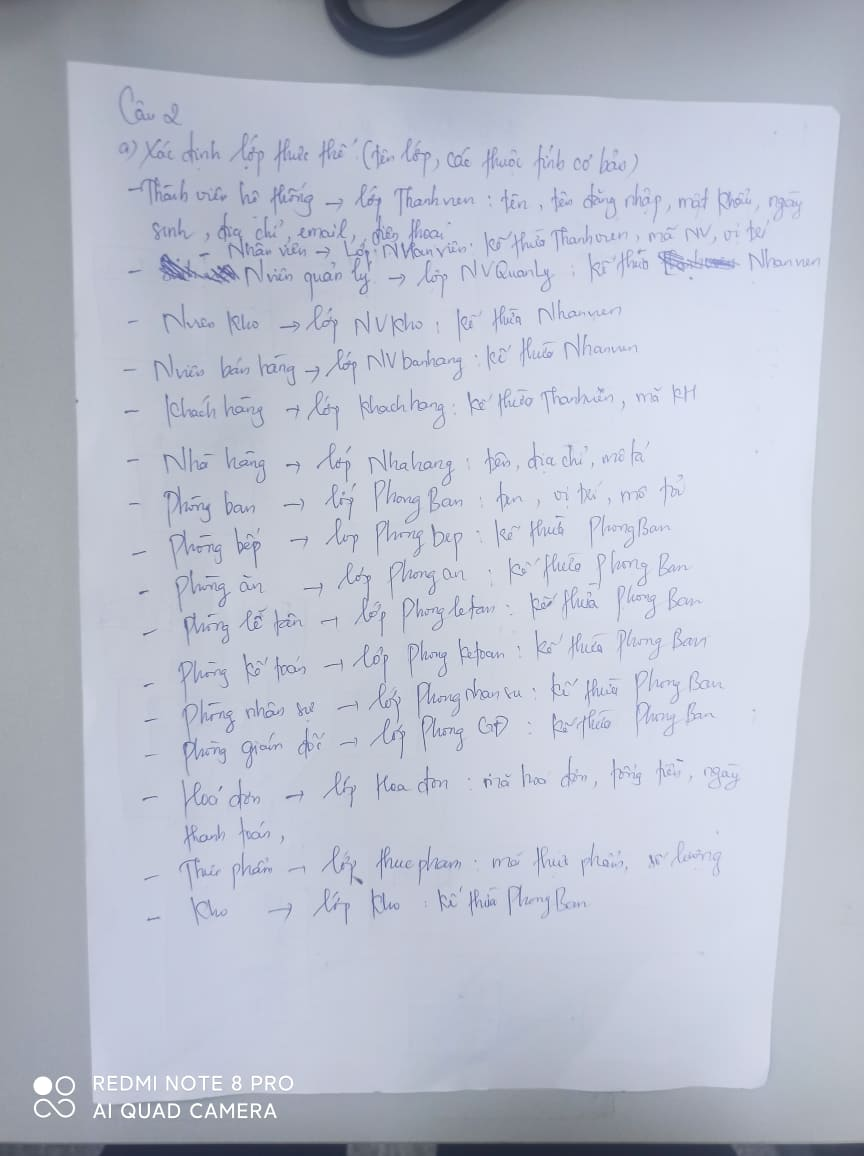 Câu 2
a) Xác định lớp thực thể (tên lớp, các thuộc tính cơ bản)
- Thành viên hệ thống → lớp Thanhvien : tên, tên đăng nhập, mật khẩu, ngày
sinh, địa chỉ, email, điện thoại
- Nhân viên → Lớp: NVanviên: kế thừa Thanhvien, mã NV, vị trí
- Nviên quản lý → lớp NVQuanLy : kế thừa Nhanvien
- Nviên kho → lớp NVKho : kế thừa Nhanvien
- Nviên bán hàng → lớp NVbanhang : kế thừa Nhanvien
- Khách hàng → lớp Khachhang : kế thừa Thanhviên, mã KH
- Nhà hàng → lớp Nhahang : tên, địa chỉ, mô tả
- Phòng ban → lớp PhongBan : tên, vị trí, mô tả
- Phòng bếp → lớp Phongbep : kế thừa PhongBan
- Phòng ăn → lớp Phongan : kế thừa Phong Ban
- Phòng lễ tân → lớp Phongletan : kế thừa Phong Ban
- Phòng kế toán → lớp Phong ketoan : kế thừa Phong Ban
- Phòng nhân sự → lớp Phongnhansu : kế thừa Phong Ban
- Phòng giám đốc → lớp Phong GĐ : kế thừa Phong Ban
- Hoá đơn → lớp Hoa đơn : mã hoá đơn, tổng tiền, ngày
thanh toán,
- Thực phẩm → lớp thucpham : mã thực phẩm, số lượng
- Kho → lớp Kho : kế thừa PhongBan
REDMI NOTE 8 PRO
AI QUAD CAMERA